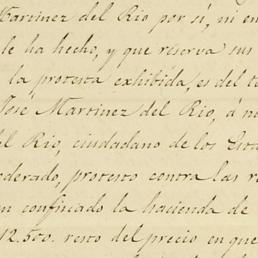 Martinez del Rio por sí, ni en
le ha hecho, y que reserva sus
la protesta exhibida, es del t
José Martinez del Rio, á n
el Rio, ciudadano de los Esta
oderado, protesto contra las
n confiscado la hacienda de
12.500. resto del precio en que